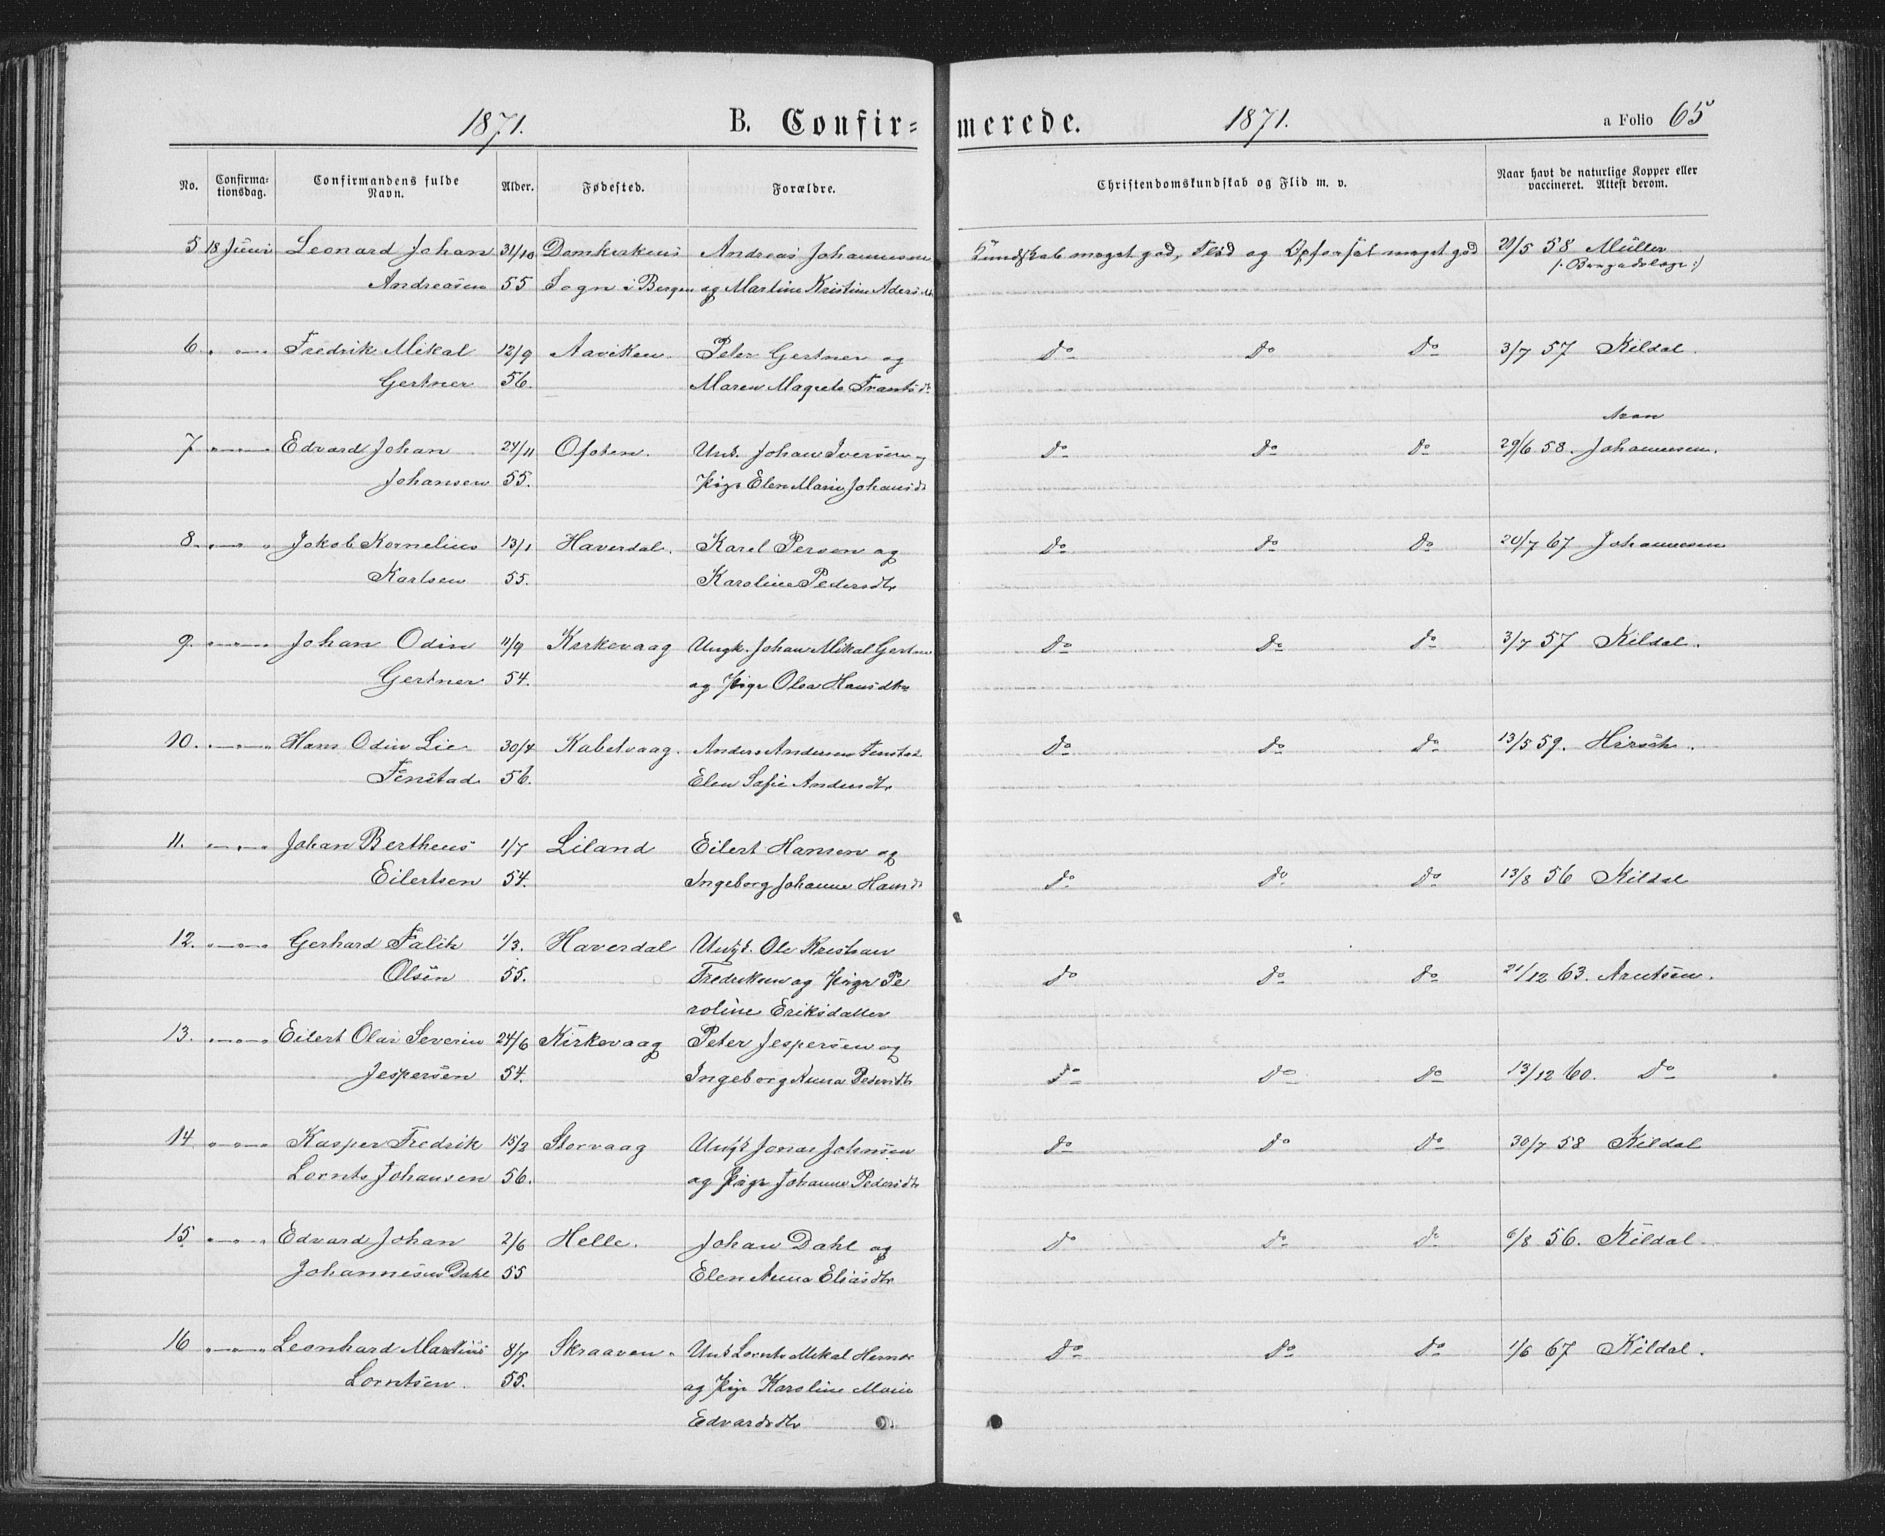 1871. B. Confir= merede. 1871. a Folio 65
No. Confirma-tionsdag. Confirmandens fulde Navn. Alder. Fødested. Forældre. Christendomskundskab og Flid m. v. Naar havt de naturlige Kopper eller vaccineret. Attest derom.
5 18 Juni Leonard Johan 31/10 Domkirkens Andreas Johannesen Kundskab meget god, Flid og Opførsel meget god 21/5 58 Müller
Andreasen 55 Sogn i Bergen og Martine Kristine
6. Fredrik Mikal 12/9 Aaviken. Peter Gertner og do do do 3/7 57 Kildal.
Gertner 56. Maren Magrete Frantsdr
Aron
7 Edvard Johan 24/11 Ofoten. Unk. Johan Iversen og do do do 29/6 58. Johannesen.
Johansen 55. Pige Elen Marie Johansdr
8. Jakob Kornelius 13/1 Haverdal. Karel Person og do do do 20/7 67 Johannesen
Karlsen 55. Karoline Pedersdtr
9. Johan Odin 11/9 Kirkevaag Ungk. Johan Mikal Gertner do do do 3/7 57 Kildal.
Gertner 54. og Pige Olea Hansdtr
10. Hans Odin Lie 30/4 Kabelvaag. Anders Andersen Finstad do do do 13/5 59. Hirsch.
Finstad 56. Elen Safie Andersdtr
11. Johan Bertheus 1/7 Liland Eilert Hansen og
Eilertsen 54. Ingeborg Johanna Hansdr do do do 13/8 56 Kildal
12. Gerhard Falik 1/3. Haverdal Ungk. Ole Kristian
Olsen 55. Fredriksen og Pige Pe do do do 21/12 63. Arntsen.
roline Eriksdatter
13. Eilert Olai Severin 24/6 Kirkevaag Peter Jespersen og
Jespersen 54. Ingeborg Anna Pedersdtr do do do 13/12 60. do
14 Kasper Fredrik 15/2 Storvaag Ungk Jonas Johnsen do do do 30/7 58 Kildal
Lornts Johansen 56. og Pige Johanna Pedersdtr
15 Edvard Johan 2/6 Helle. Johan Dahl og do do do 6/8 56. Kildal.
Johannesen Dahl 55 Elen Anna Eliasdtr
16 Leonhard Martinus 8/7 Skraaven. Unk Lornts Mikal do do do 1/6 67 Kildal.
Lorntsen 55. og Pige Karoline Marie
Edvardsdtr